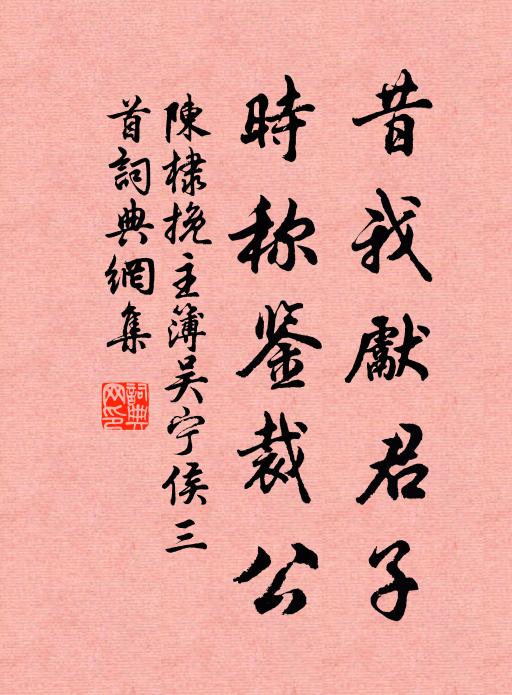 昔我獻君子
時称鉴裁公
陳棣挽主簿吴宁侯三
首詞典網集
詞典网印